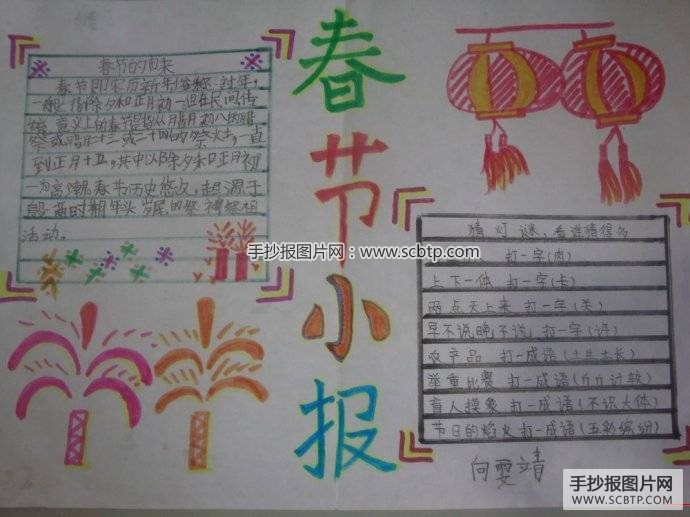 春节的由来
春节即农历新年,俗称过年,
一般指除夕和正月初一。但在民间,传
统意义上的春节是指从腊月初八的腊
祭或腊月二十三或二十四的祭灶,一直
到正月十五,其中以除夕和正月初
一为高潮。春节历史悠久,起源于
殷商时期年头岁尾的祭神祭祖
活动。
春节小报
猜灯谜,看谁猜得多
打一字(肉)
上下一体 打一字(卡)
两点天上来 打一字(关)
早不说晚不说 打一字(许)
农产品 打一成语(土生土长)
举重比赛 打一成语(斤斤计较)
盲人摸象 打一成语(不识大体)
节日的焰火 打一成语(五彩缤纷)
向雯靖
手抄报图片网:www.scbtp.com
手抄报图片网
WWW.SCBTP.COM